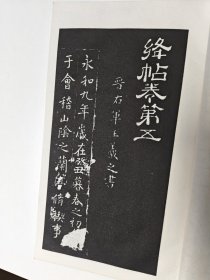 絳帖卷第五
晉右軍王羲之書
永和九年歲在癸丑暮春之初
于會稽山陰之蘭亭脩禊事